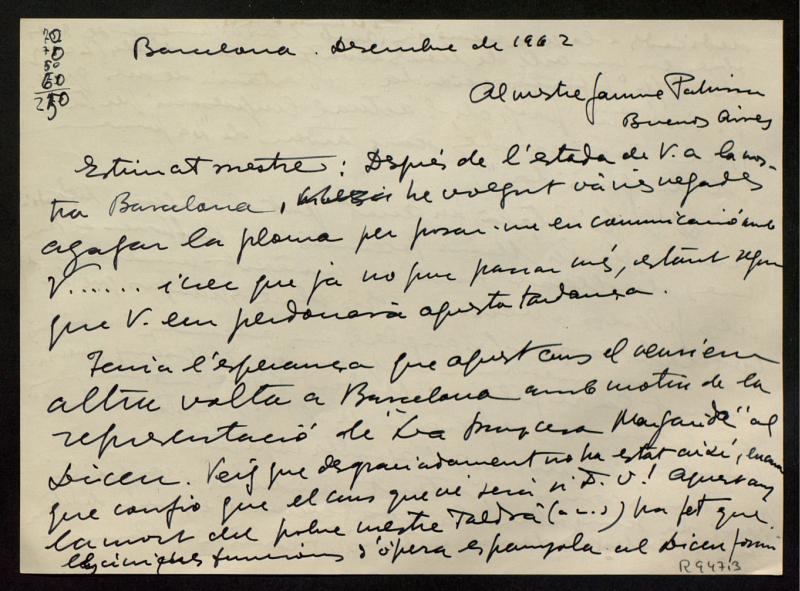 70
70
50
60
250
Barcelona. Desembre de 1962
Al mestre Jaume Pahissa
Buenos Aires
Estimat mestre: Després de l'estada de V. a la nos-
tra Barcelona, he volgut vàries vegades
agafar la ploma per posar-me en comunicació amb
V...... i crec que ja no puc passar més, estant segur
que V. em perdonarà aquesta tardança.
Tenia l'esperança que aquest any el veuriem
altra volta a Barcelona amb motiu de la
representació de "La princesa Margarida" al
Liceu. Veig que desgraciadament no ha estat així, encara
que confio que el any que vé serà si D. V.! Aquest any
la mort del pobre mestre Toldrà (a.c.s) ha fet que
les úniques funcions d'òpera espanyola al Liceu
R 947/3